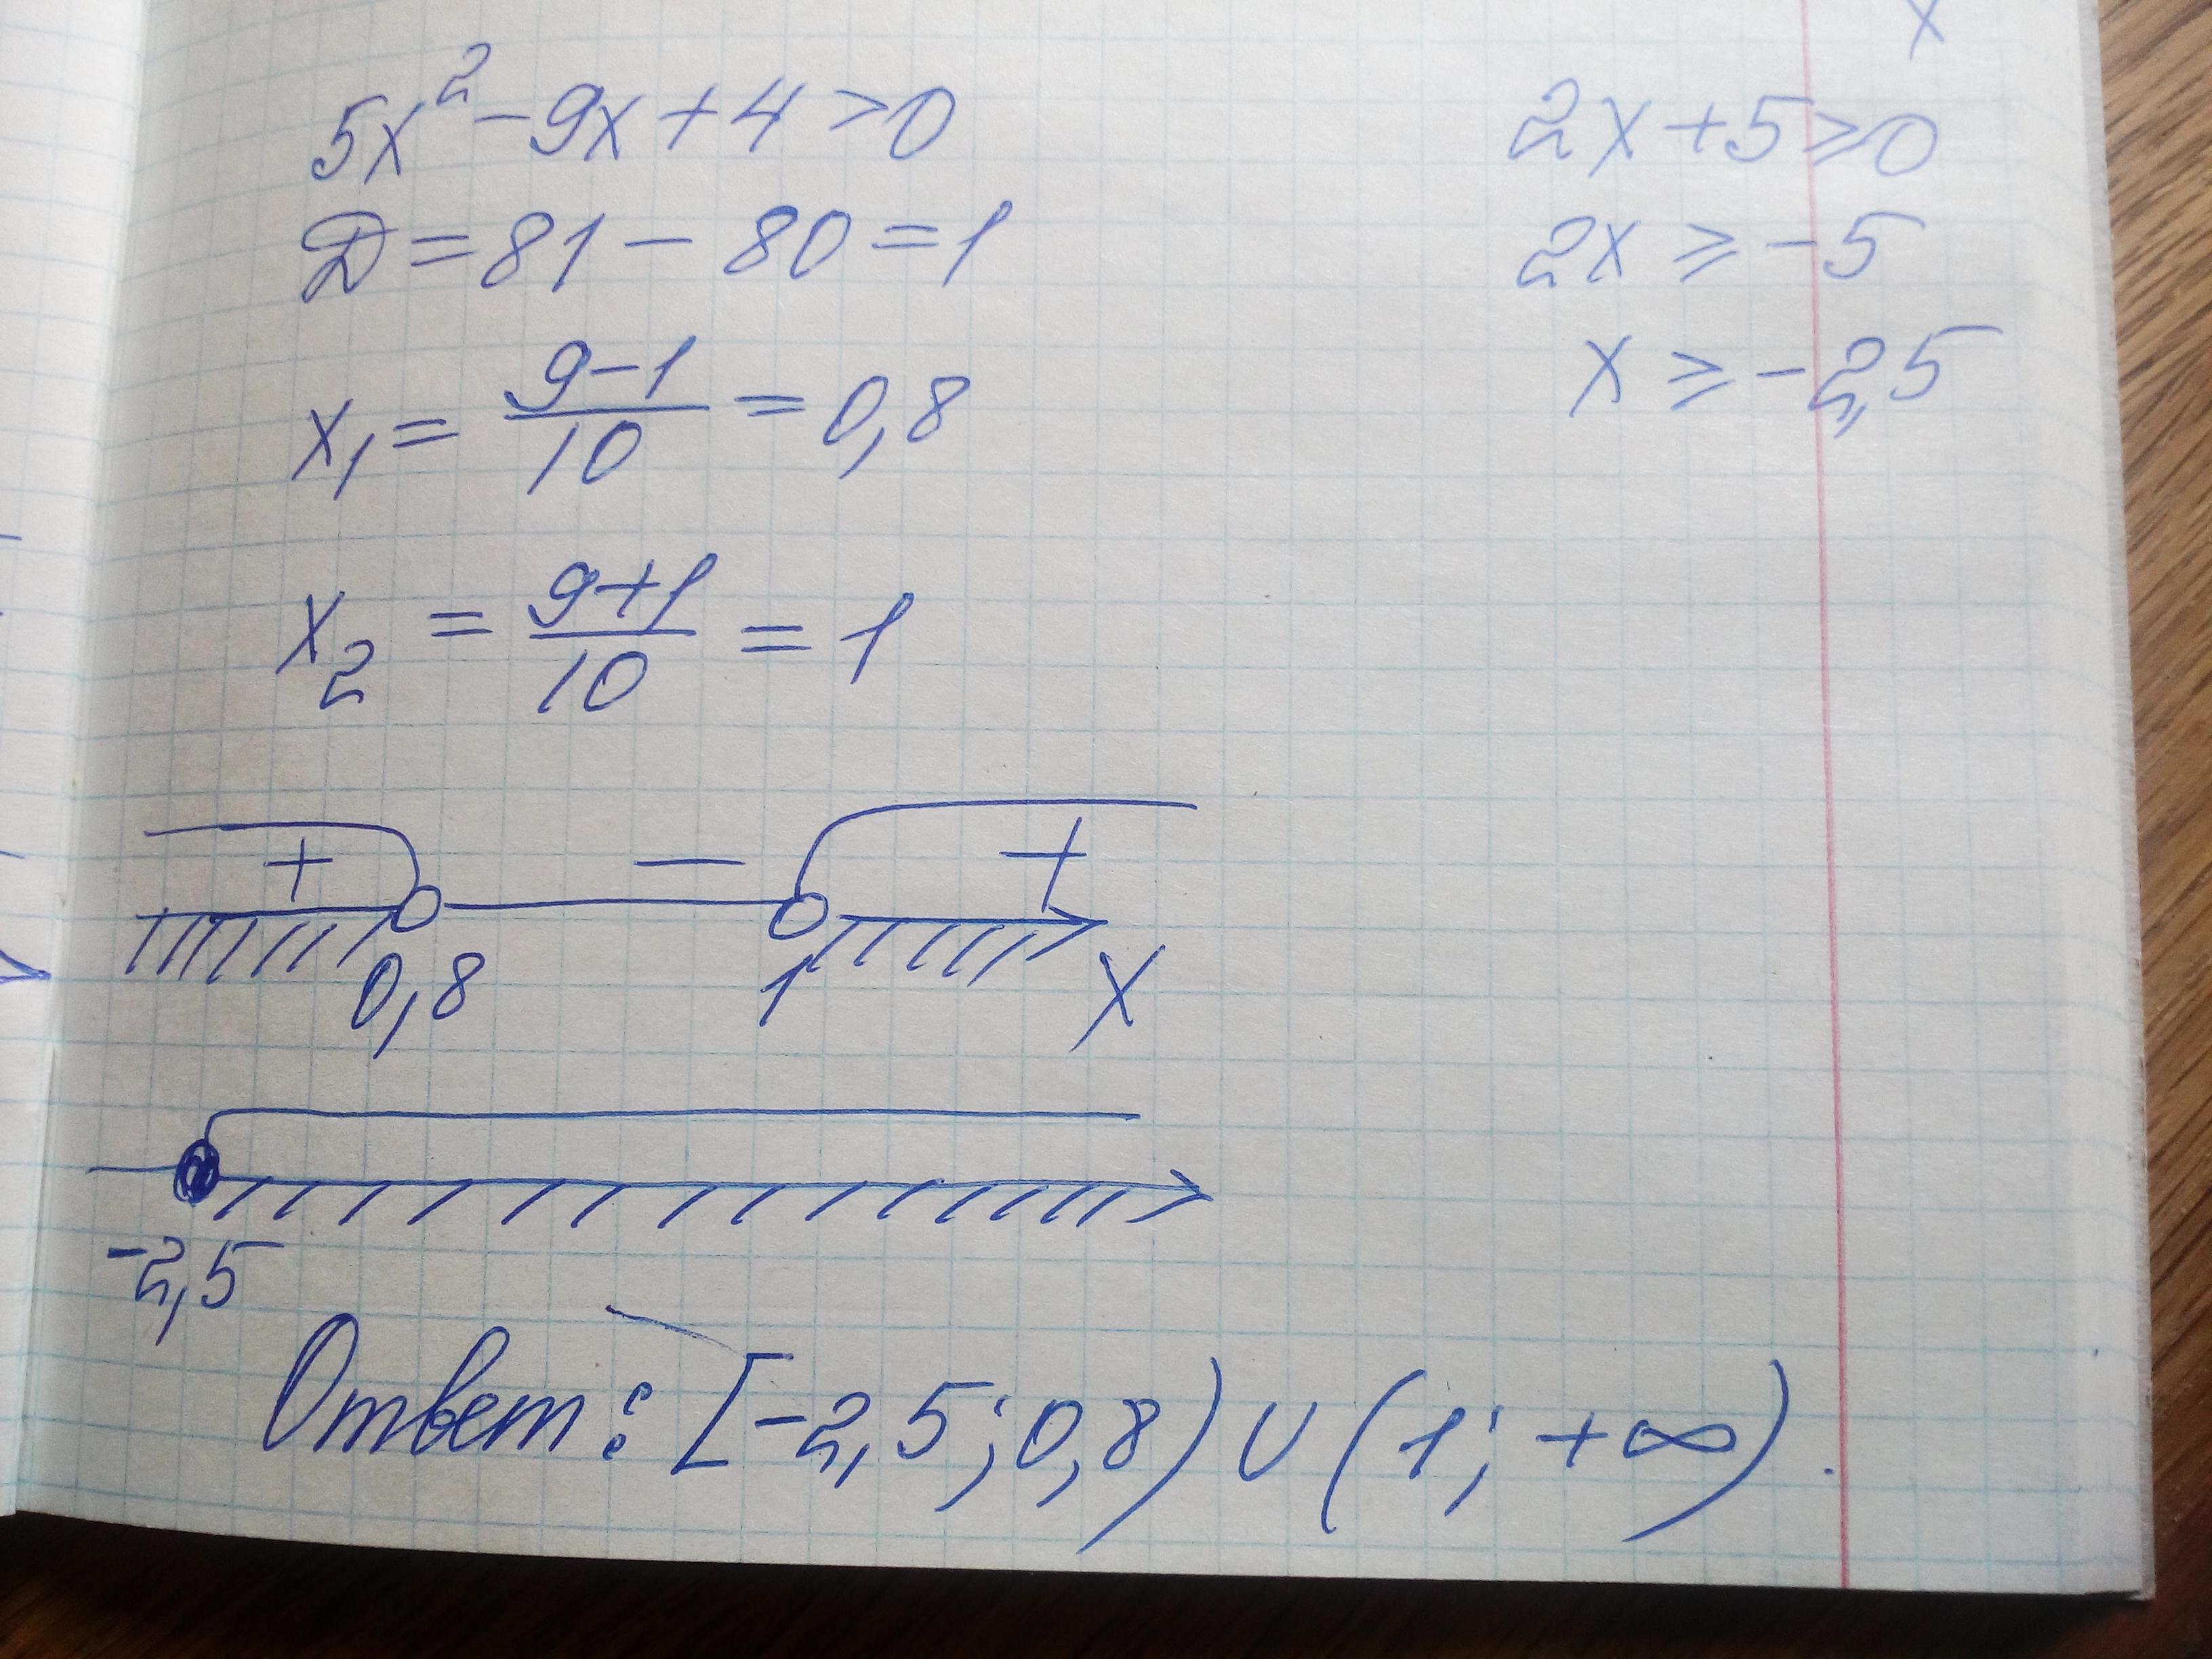 x
5x² - 9x + 4 > 0
D = 81 - 80 = 1
x₁ = (9-1)/10 = 0,8
x₂ = (9+1)/10 = 1
2x + 5 ≥ 0
2x ≥ -5
x ≥ -2,5
+ — +
0,8 1 x
-2,5
Ответ: [-2,5; 0,8) ∪ (1; +∞).